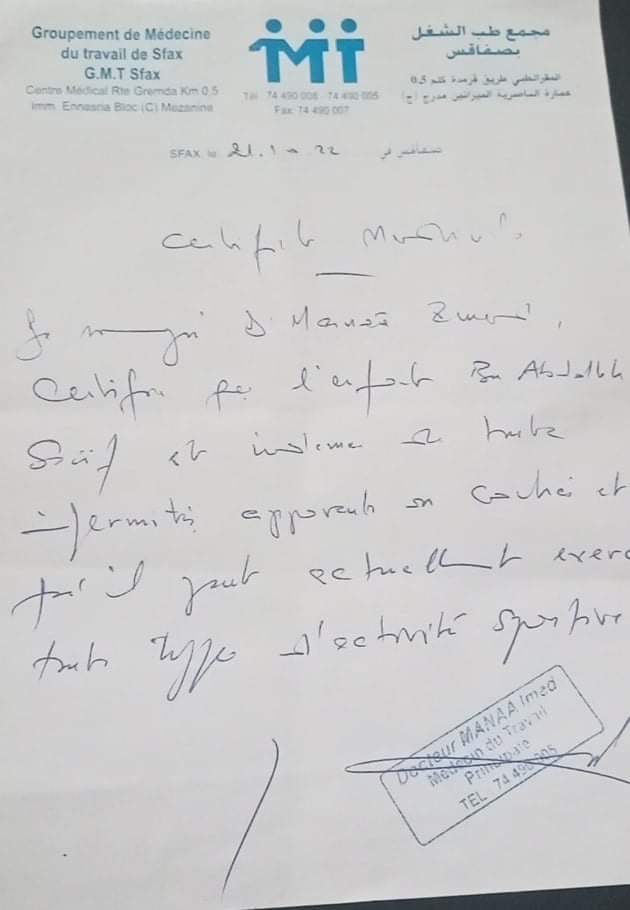 Groupement de Médecine
du travail de Sfax
G.M.T Sfax
Centre Médical Rte Gremda Km 0,5
Imm. Ennasria Bloc (C) Mezanine
GMT
Tél: 74 490 008 - 74 490 005
Fax: 74 490 007
مجمع طب الشغل
بصفاقس
طريق قرمدة كلم 0,5
عمارة الناصرية
SFAX le 21.10.22 صفاقس في
Certificat
Je Dr Manaa
Certifie que l'enfant Ben Abdallah
et indemne de toute
infirmité apparente ou cachée et
qu'il peut actuellement exerc
toute type d'activité sportive
Docteur MANAA Imed
Médecin du Travail
Principale
TEL : 74 490 005